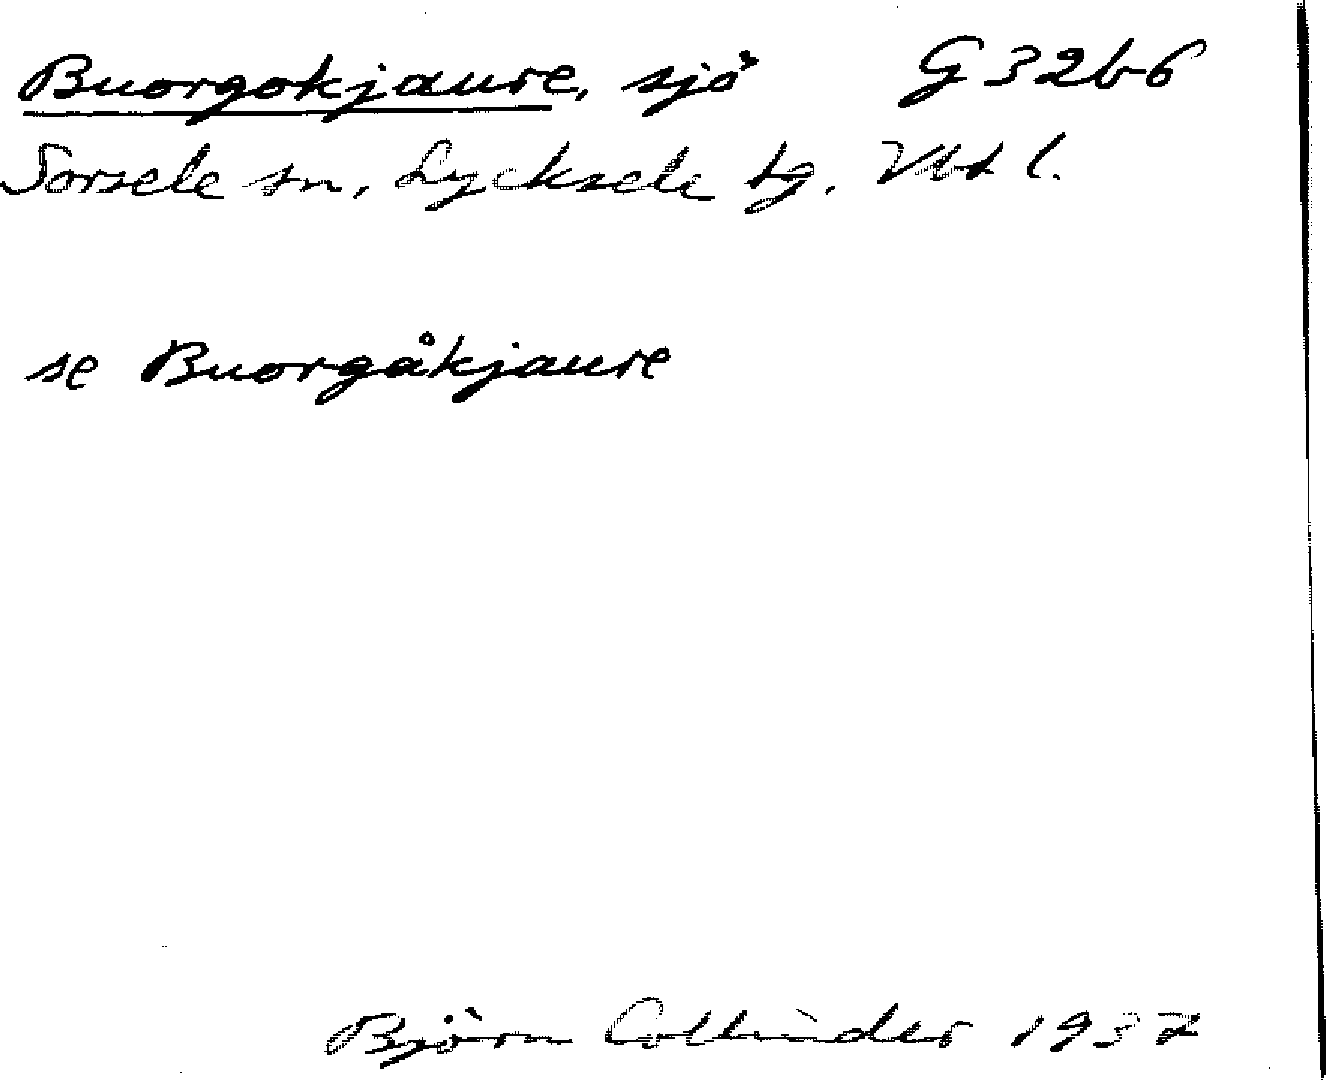 Buorgokjaure, sjö G 32 b 6
Sorsele sn, Lycksele tg. Vbt l.
se Buorgåkjaure
Björn Collinder 1937